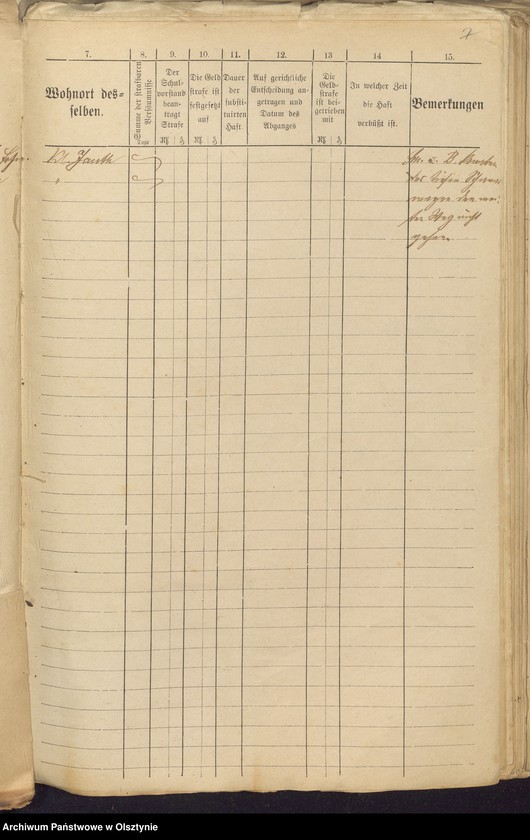 7
7.
8.
9.
10.
11.
12.
13
14
15.
Wohnort des=
selben.
Summe der strafbaren
Versäumnisse
Tage
Der
Schul-
vorstand
bean-
tragt
Strafe
M ₰
Die Geld
strafe ist
festgesetzt
auf
M ₰
Dauer
der
substi-
tuirten
Haft.
Auf gerichtliche
Entscheidung an-
getragen und
Datum des
Abganges
Die
Geld-
strafe
ist bei-
getrieben
mit
M ₰
In welcher Zeit
die Haft
verbüßt ist.
Bemerkungen
Kl. Jauth
"
B.
wegen
Weg nicht
gehen
Archiwum Państwowe w Olsztynie